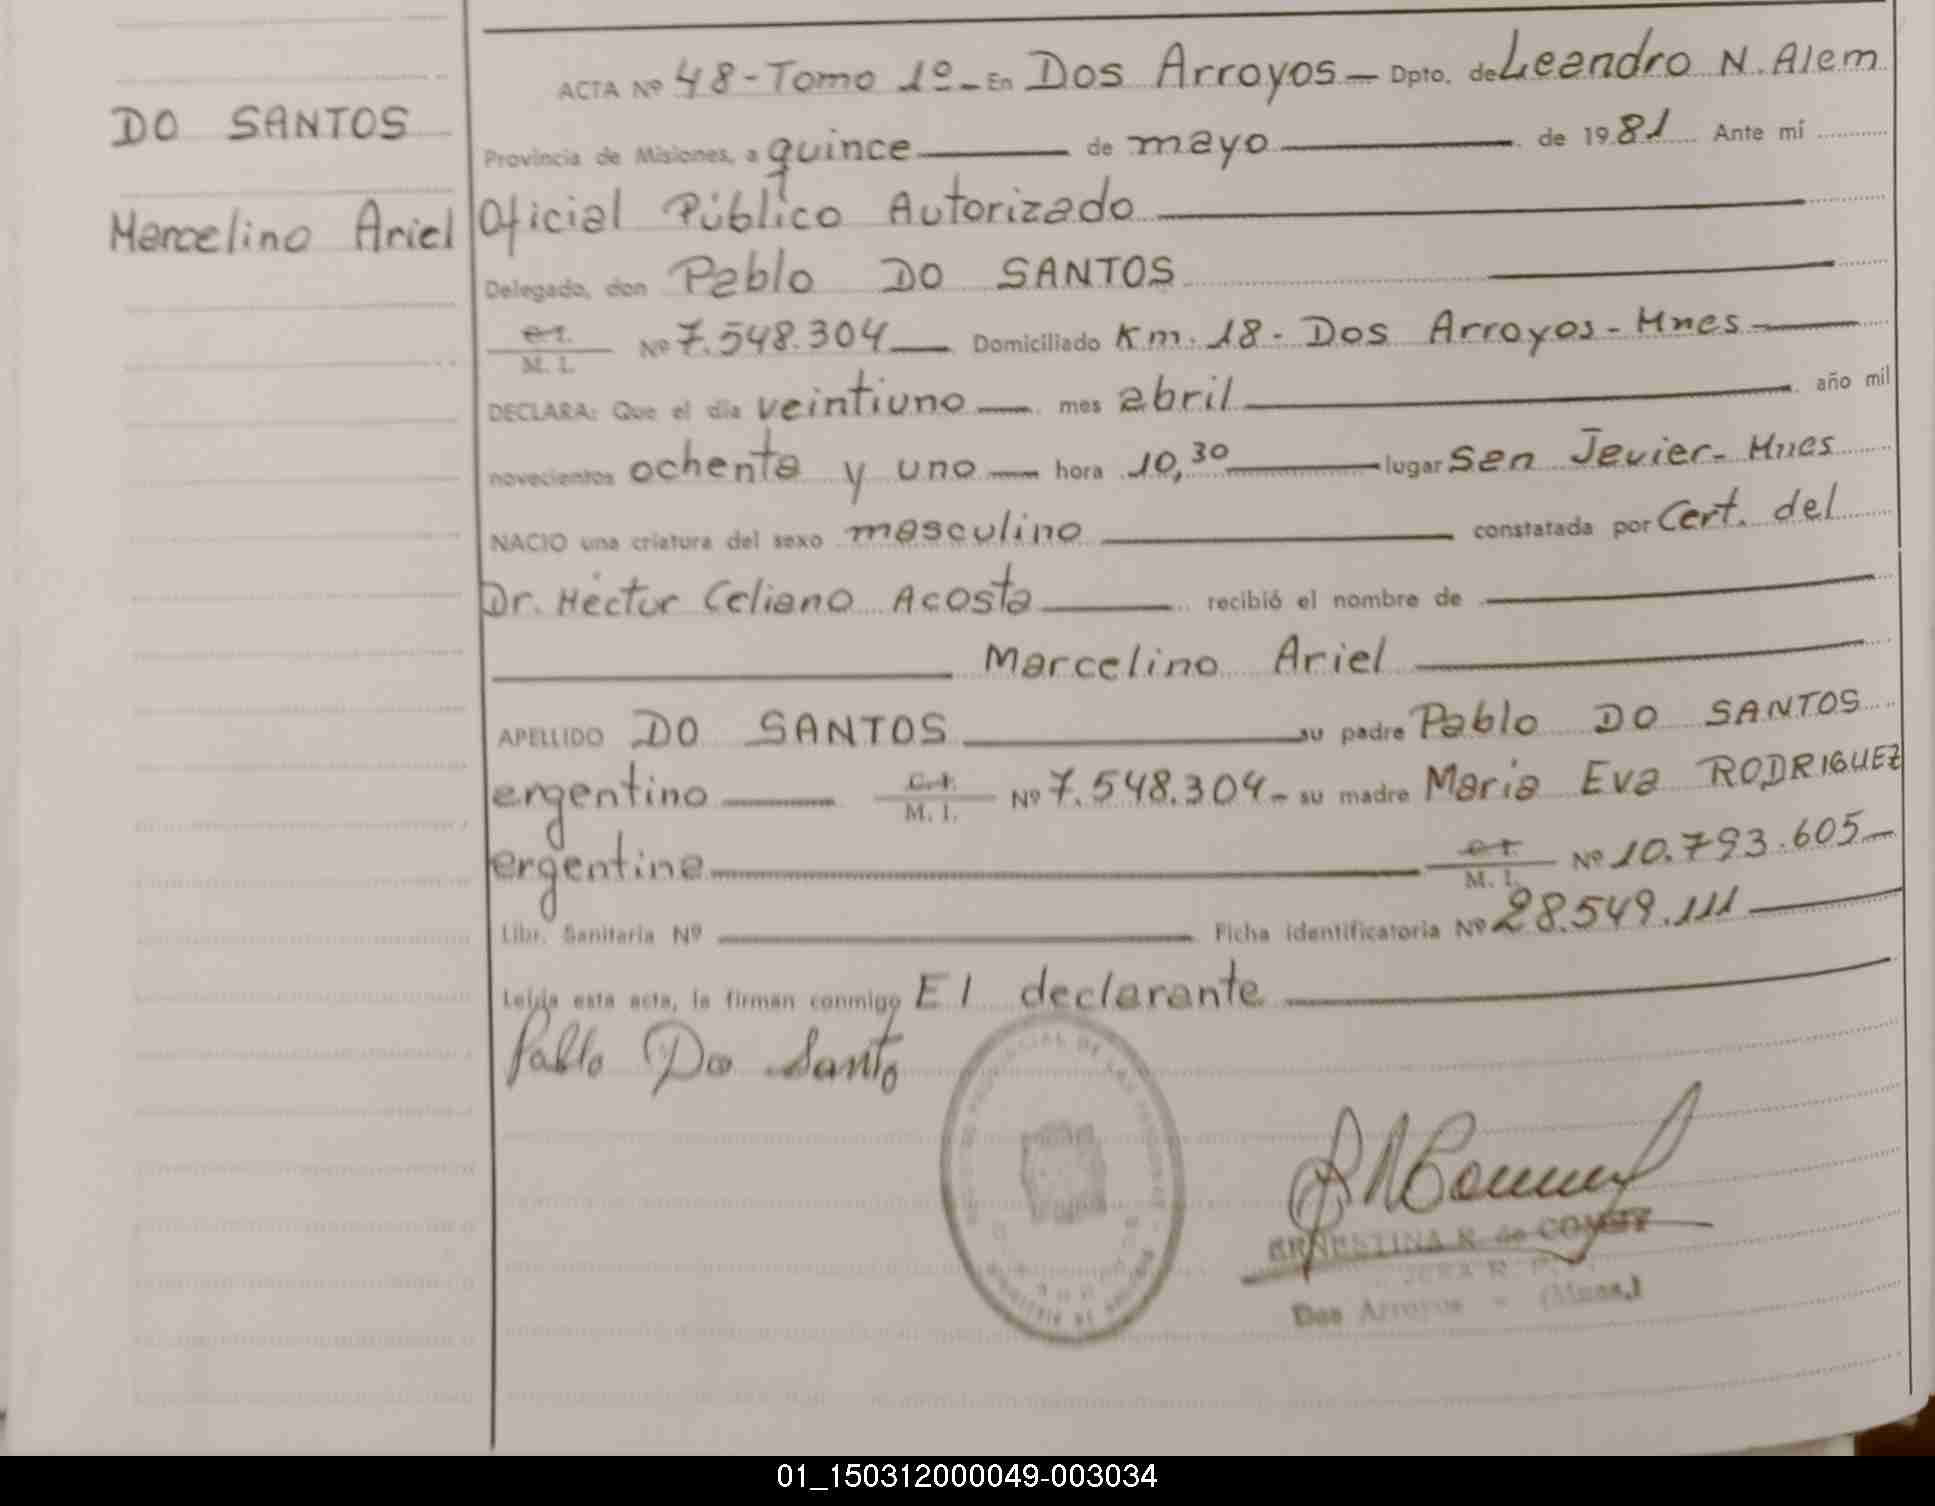 DO SANTOS
Marcelino Ariel
ACTA Nº 48-Tomo 1º- En Dos Arroyos- Dpto. de Leandro N. Alem
Provincia de Misiones, a quince de mayo de 1981 Ante mí
Oficial Público Autorizado
Delegado, don Pablo DO SANTOS
C.I. M. I. Nº 7.548.304 Domiciliado Km. 18- Dos Arroyos- Mnes
DECLARA: Que el día veintiuno mes abril año mil
novecientos ochenta y uno hora 10,30 lugar San Javier- Mnes
NACIO una criatura del sexo masculino constatada por Cert. del
Dr. Héctor Celiano Acosta recibió el nombre de
Marcelino Ariel
APELLIDO DO SANTOS su padre Pablo DO SANTOS
argentino C.I. M. I. Nº 7.548.304- su madre Maria Eva RODRIGUEZ
argentina C.I. M. I. Nº 10.793.605-
Libr. Sanitaria Nº Ficha identificatoria Nº 28.549.111
Leída esta acta, la firman conmigo El declarante
Pablo Do Santo
ERNESTINA R. de
Dos Arroyos - (Mnes.)
01_150312000049-003034